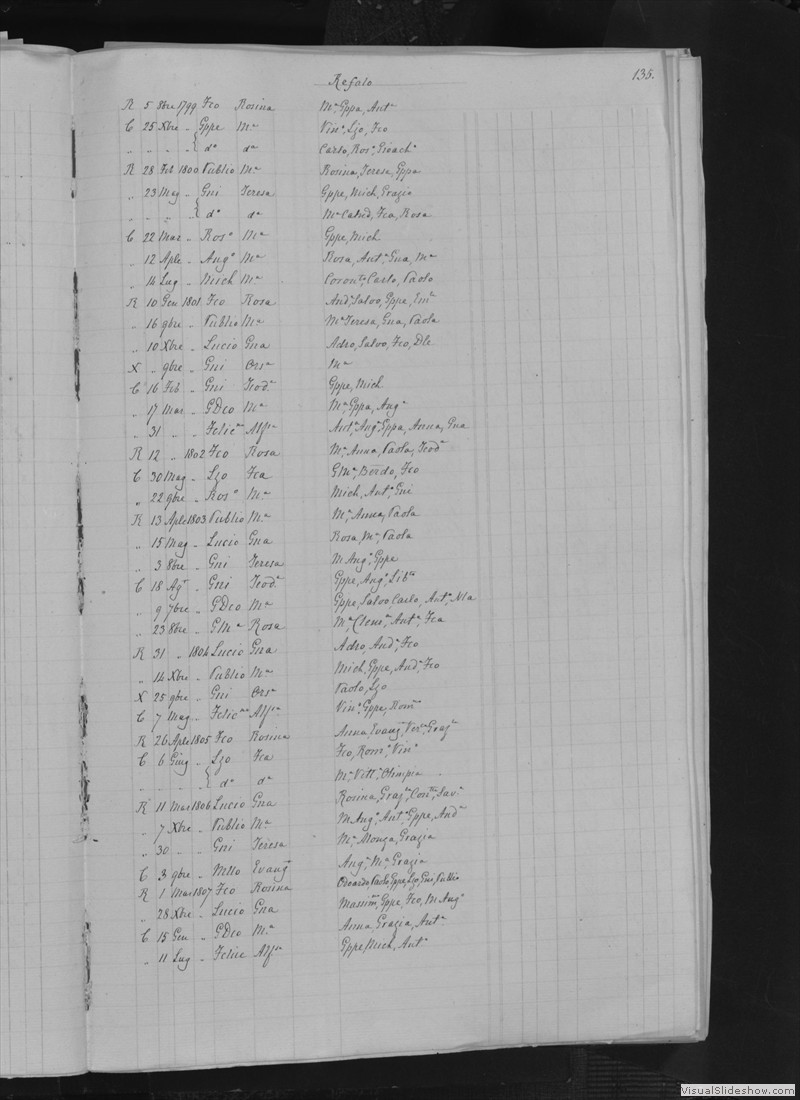 Refalo
135.
R 5 8bre 1799 Fco Rosina Mª Gppa, Antª
C 25 Xbre " Gppe Mª Vinº, Lzo, Fco
" " " " dº dª Carlo, Rosº, Gioachº
R 28 Feb 1800 Publio Mª Rosina, Teresa, Gppa
" 23 Mag " Gni Teresa Gppe, Mich, Grazia
" " " " dº dª Mª Catnd, Fca, Rosa
C 22 Mar " Rosº Mª Gppe, Mich
" 12 Aple " Augº Mª Rosa, Antª, Gna, Mª
" 14 Lug " Mich Mª Coronta, Carlo, Paolo
R 10 Gen 1801 Fco Rosa Andª, Salvo, Gppe, Emª
" 16 9bre " Publio Mª Mª Teresa, Gna, Paola
" 10 Xbre " Lucio Gna Adeo, Salvo, Fco, Dle
X " 9bre " Gni Orsª Mª
C 16 Feb " Gni Teodª Gppe, Mich
" 17 Mar " GDco Mª Mª, Gppa, Augª
" 31 " " Felicnº Alfsª Antª, Augª, Gppa, Anna, Gna
R 12 " 1802 Fco Rosa Mª, Anna, Paola, Teodª
C 30 Mag " Lzo Fca GMª, Berdo, Fco
" 22 9bre " Rosº Mª Mich, Antº, Gni
R 13 Aple 1803 Publio Mª Mª, Anna, Paola
" 15 Mag " Lucio Gna Rosa, Mª, Paola
" 3 8bre " Gni Teresa M Augº, Gppe
C 18 Agº " Gni Teodª Gppe, Augº, Libto
" 9 7bre " GDco Mª Gppe, Salvo, Carlo, Antº, Nla
" 23 8bre " GMª Rosa Mª, Clemª, Antª, Fca
R 31 " 1804 Lucio Gna Adeo, Andª, Fco
" 14 Xbre " Publio Mª Mich, Gppe, Andª, Fco
X 25 9bre " Gni Orsª Paolo, Lzo
C 7 Mag " Felicnº Alfsª Vinº, Gppe, Romº
R 26 Aple 1805 Fco Rosina Anna, Evangª, Verª, Grazª
C 6 Giug " Lzo Fca Fco, Romº, Vinº
" " " " dº dª Mª, Vittª, Olimpia
R 11 Mar 1806 Lucio Gna Rosina, Grazª, Conta, Savª
" 7 Xbre " Publio Mª M Augº, Antº, Gppe, Andª
" 30 " " Gni Teresa Mª, Alonza, Grazia
C 3 9bre " Mllo Evangª Augª, Mª, Grazia
R 1 Mar 1807 Fco Rosina Odoardo, Paolo, Gppe, Lzo, Gni, Publio
" 28 Xbre " Lucio Gna Massimº, Gppe, Fco, M Augº
C 15 Gen " GDco Mª Anna, Grazia, Antª
" 11 Lug " Felice Alfsª Gppe, Mich, Antº
VisualSlideshow.com